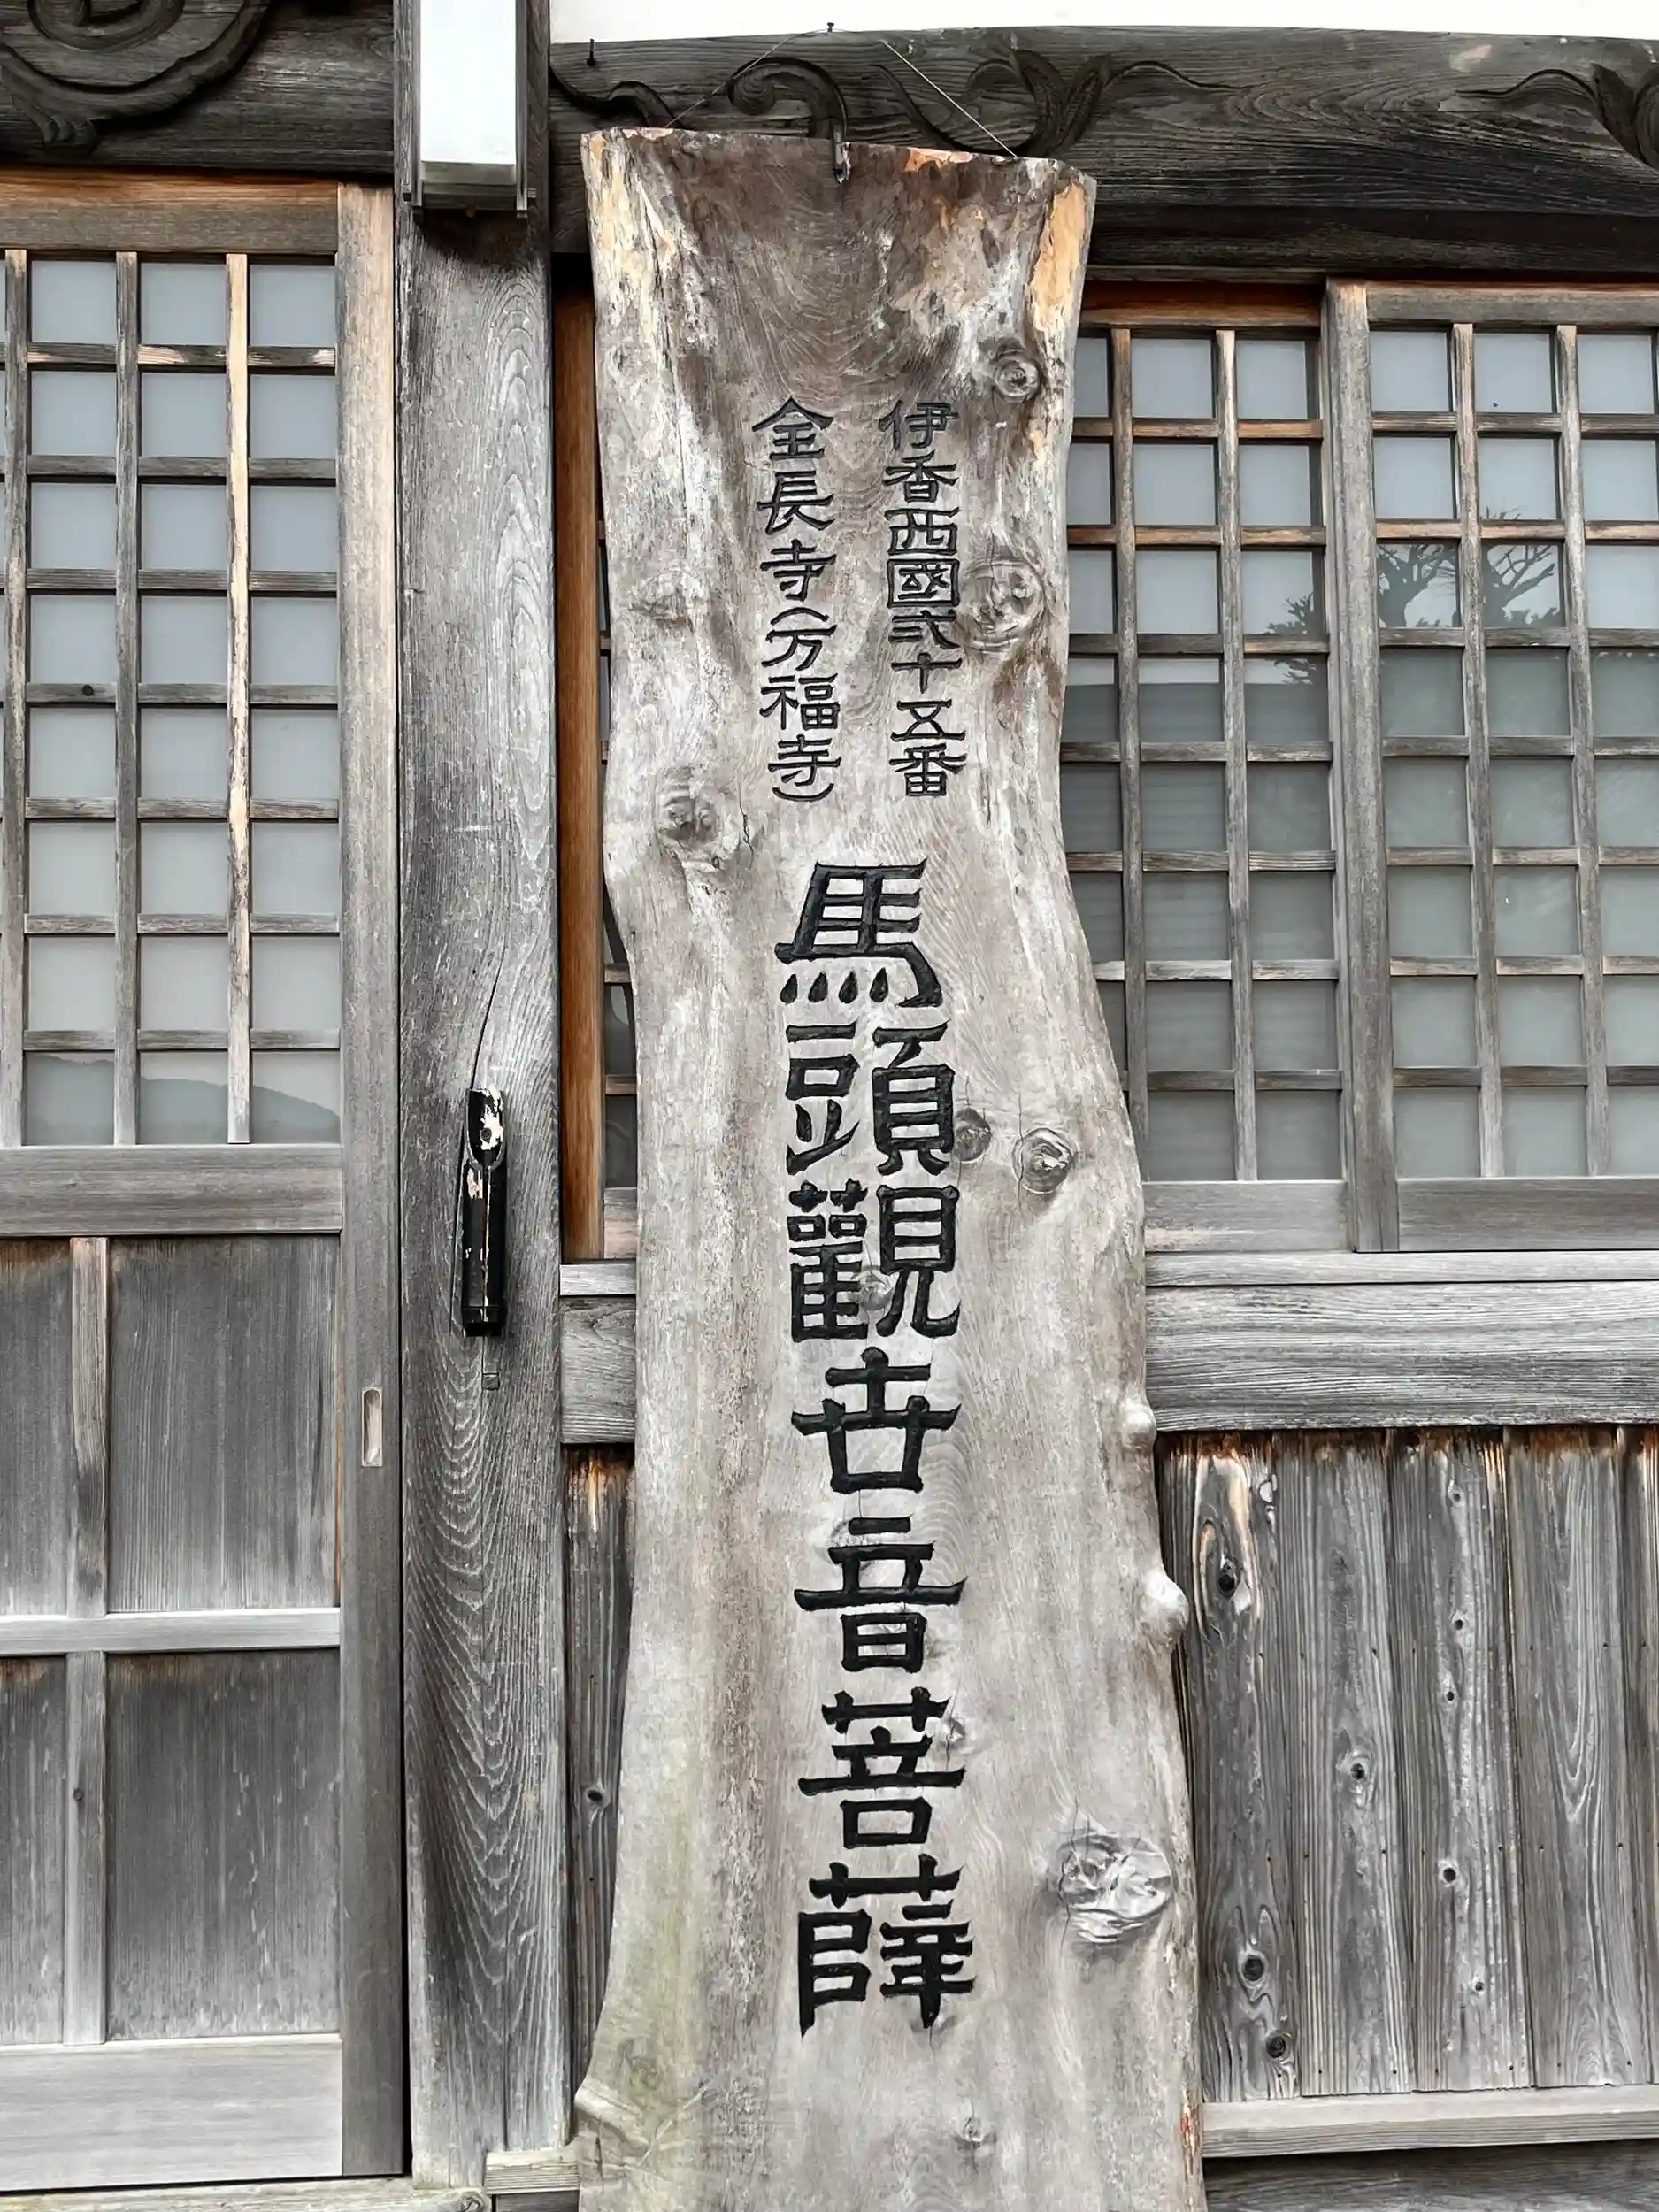 伊香西國弐十五番
全長寺(万福寺)
馬頭觀世音菩薩